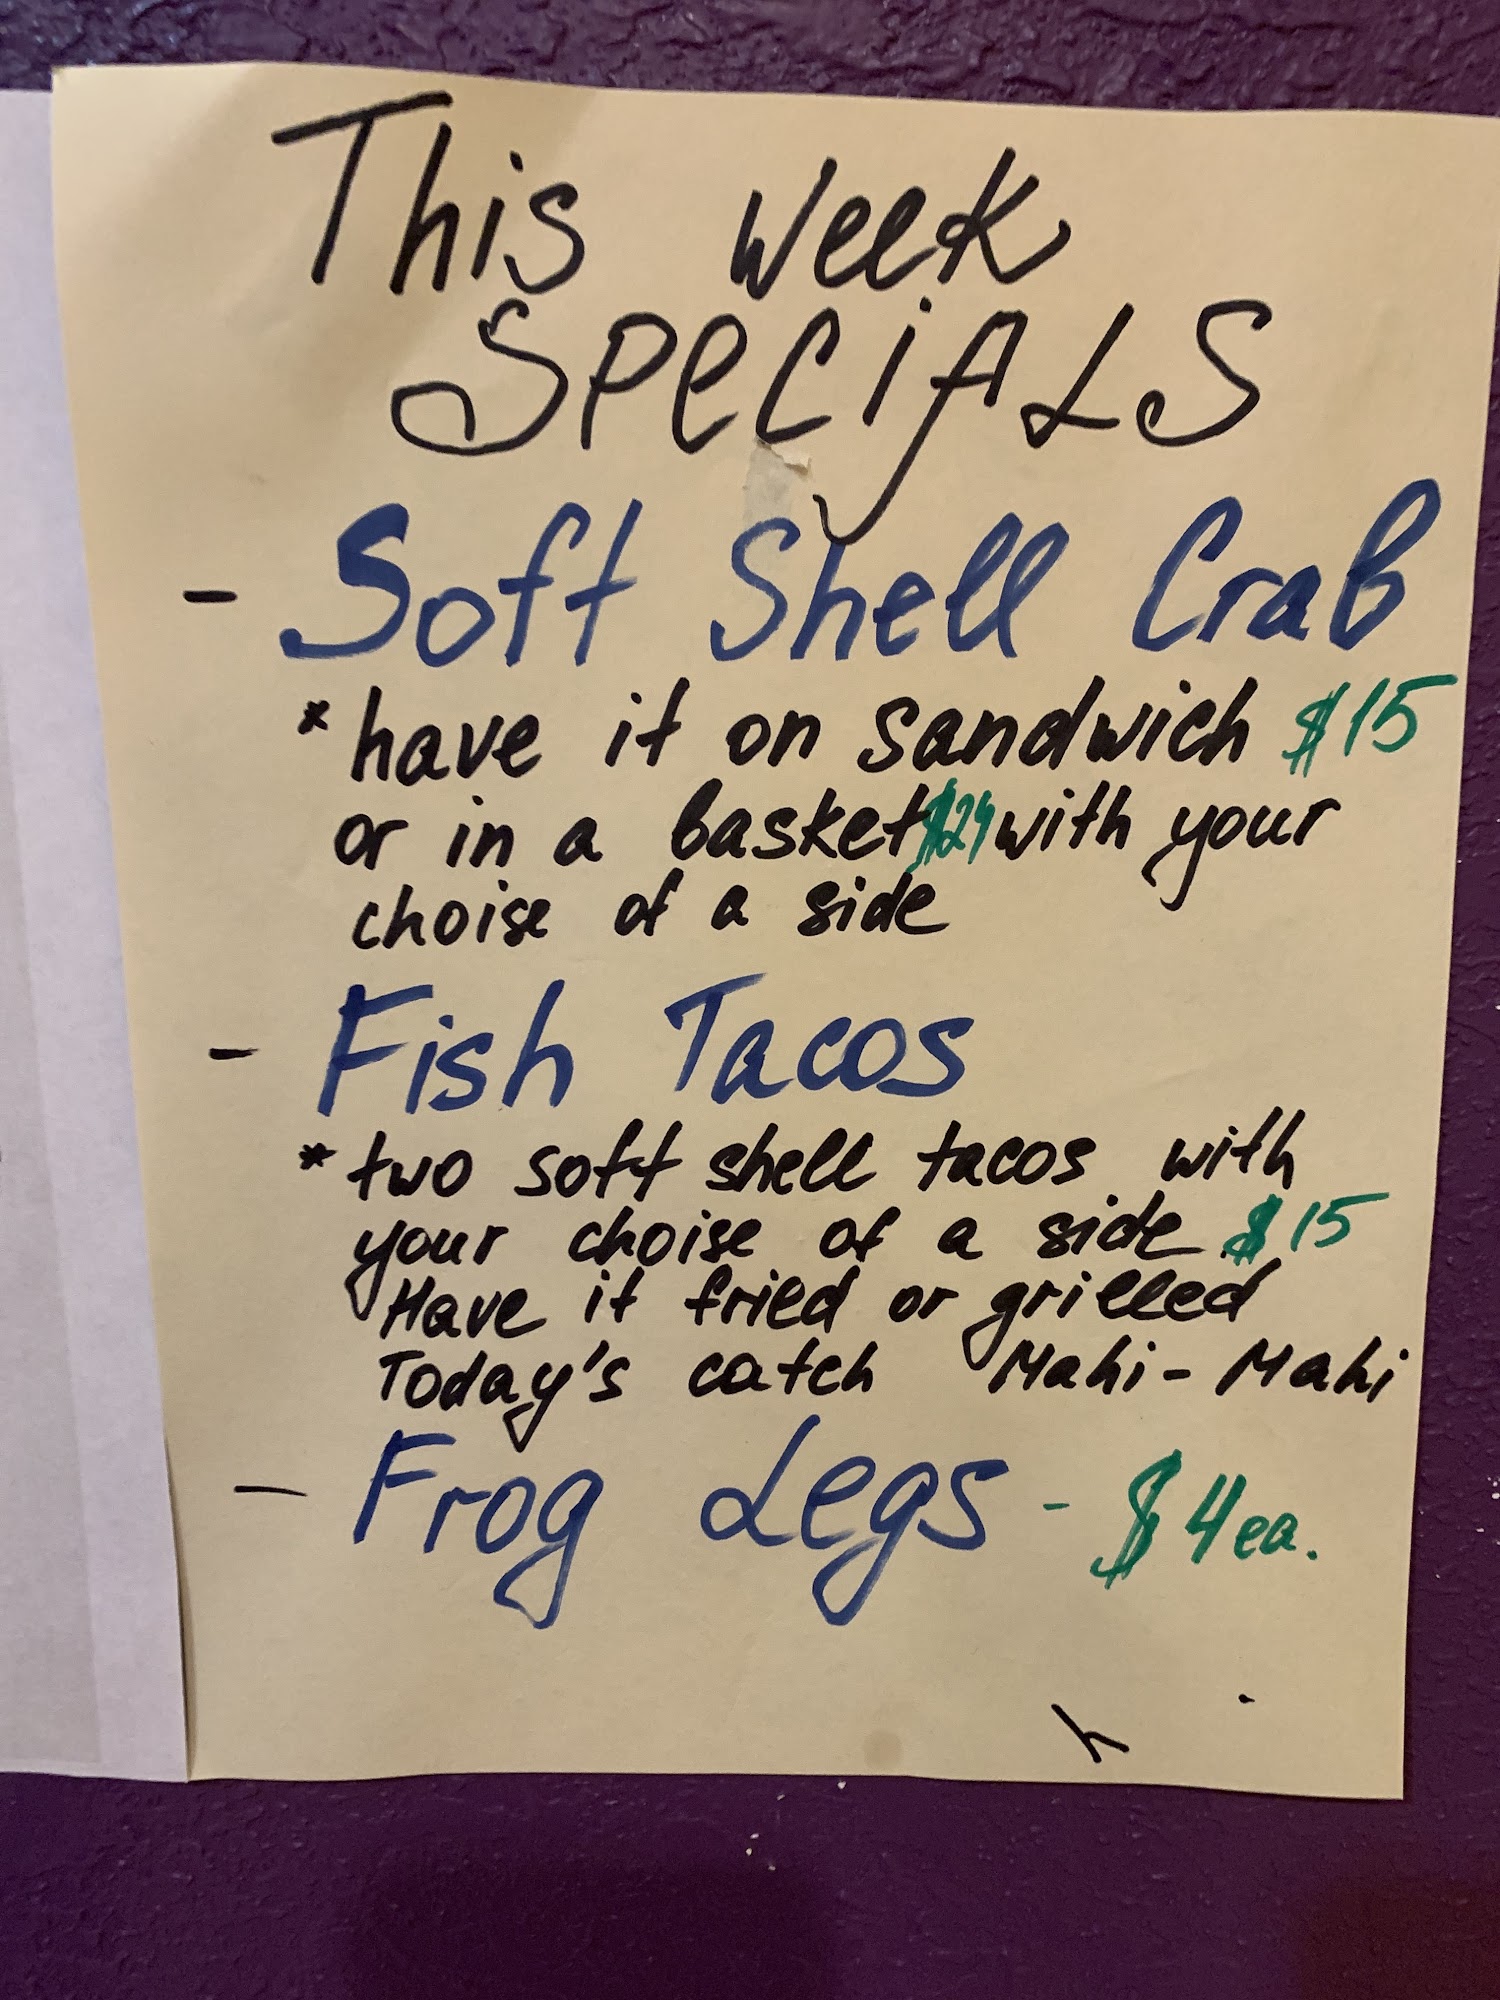 This week
SPECiALS
- Soft Shell Crab
* have it on sandwich $15
or in a basket $24 with your
choise of a side
- Fish Tacos
* two soft shell tacos with
your choise of a side $15
Have it fried or grilled
Today's catch Mahi-Mahi
- Frog Legs - $4ea.
h